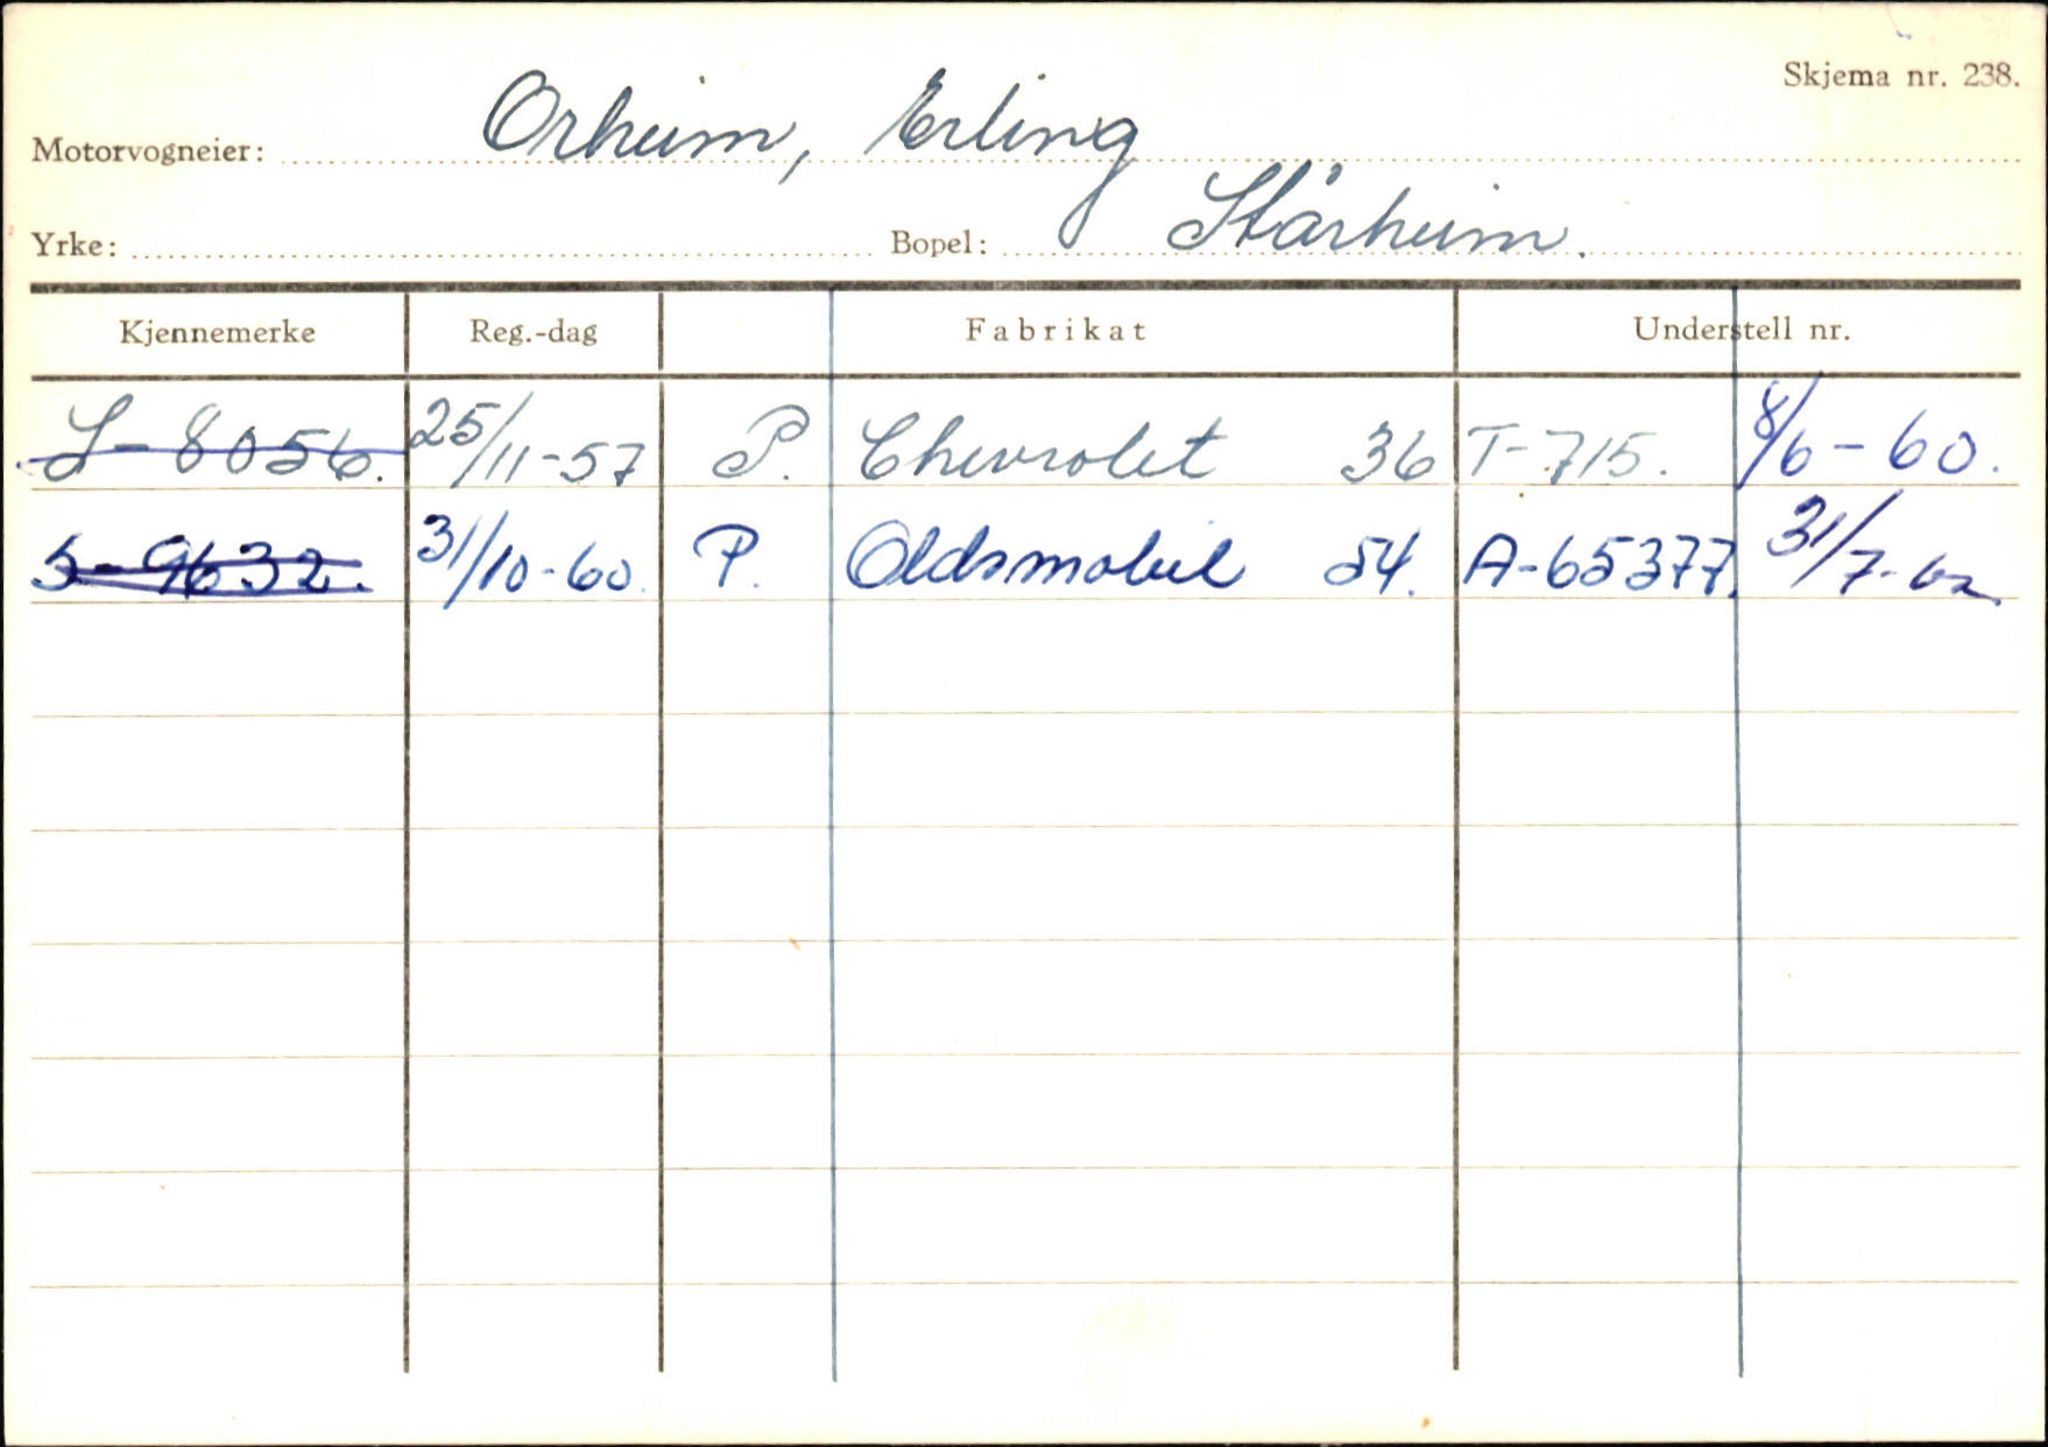 Skjema nr. 238.
Motorvogneier: Orheim, Erling
Yrke: Bopel: Stårheim.
Kjennemerke Reg.-dag Fabrikat Understell nr.
S-8056. 25/11-57 P. Chevrolet 36 T-715. 8/6-60.
S-9632. 31/10-60. P. Oldsmobil 54. A-65377. 31/7-62